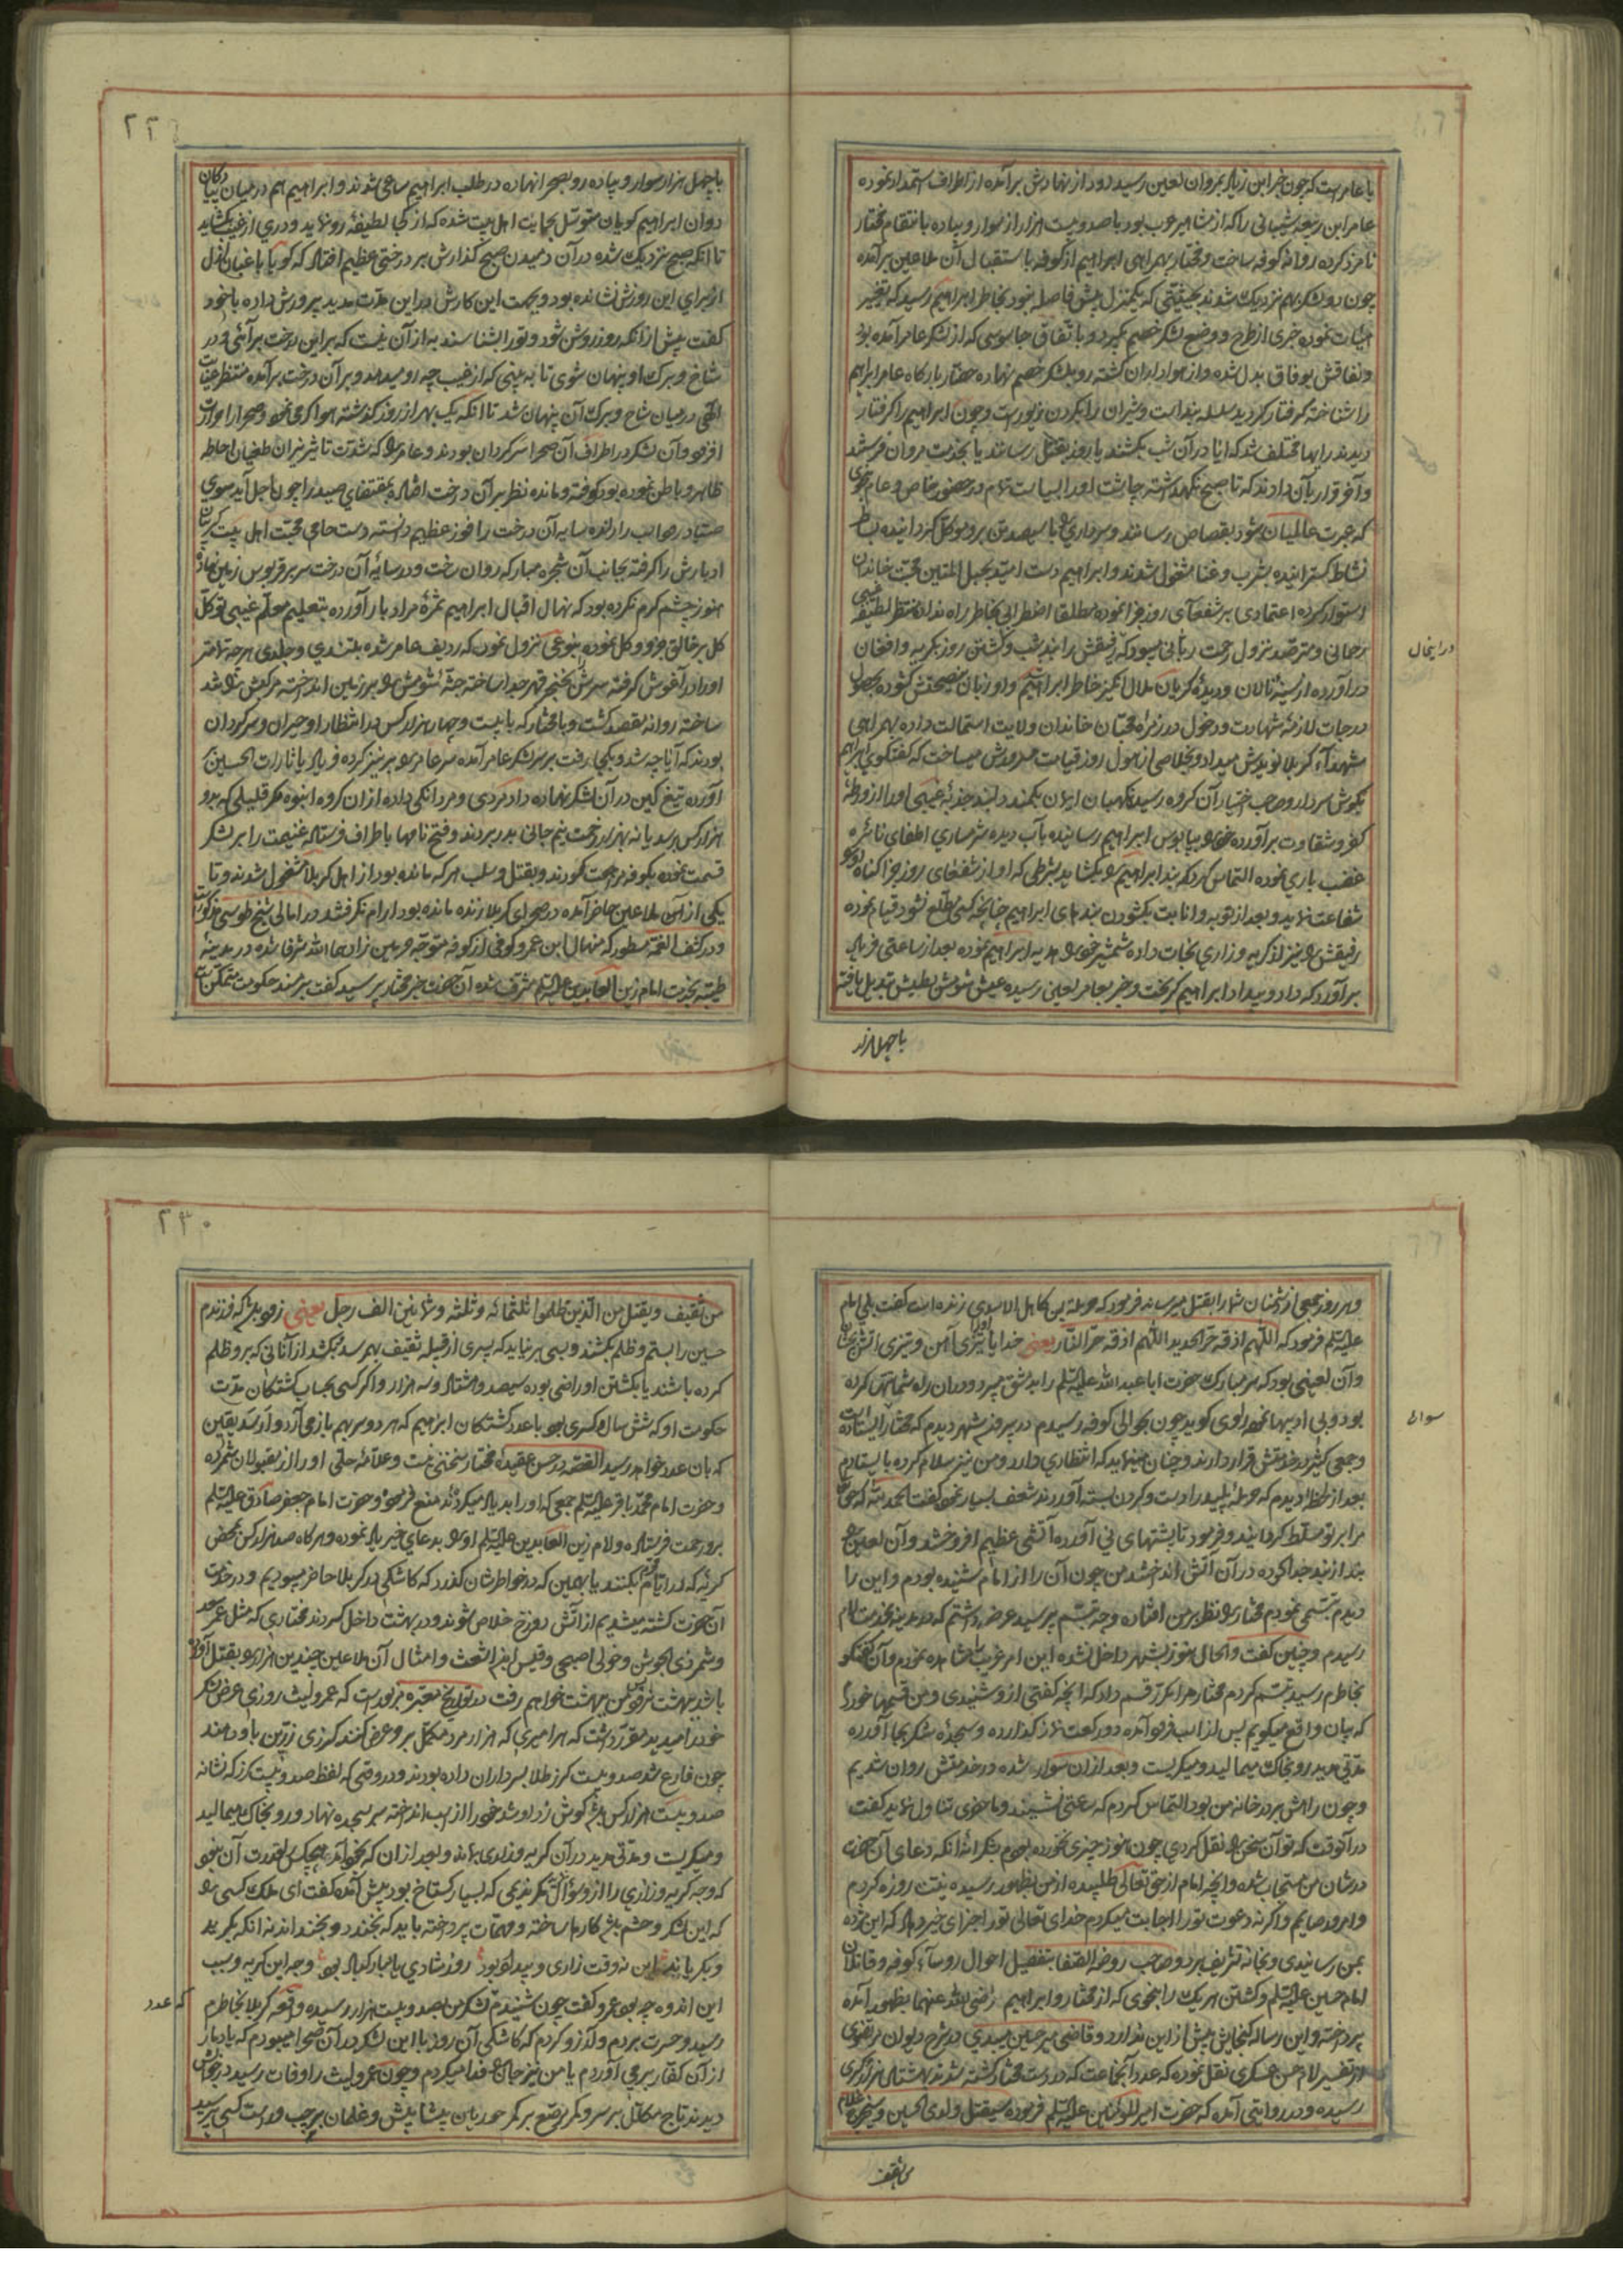 با عامر است که چون خبر ابن زیاد بمروان لعین رسید دود از نهادش برآمده از اطراف استمداد نموده
عامر ابن ربیعه شیبانی را که از مشاهیر عرب بود با صد و بیست هزار از سوار و پیاده بانتقام مختار
نامزد کرده روانه کوفه ساخت و مختار بهمراهی ابراهیم از کوفه باستقبال آن ملاعین برآمده
چون دو لشکر بهم نزدیک شدند بحیثیتی که یکمنزل بیش فاصله نبود بخاطر ابراهیم رسید که تغییر
هیات نموده خبری از طرح و وضع لشکر خصم بگیرد و باتفاق جاسوسی که از لشکر عامر آمده بود
و نفاقش بوفاق بدل شده و از هواداران گشته رو بلشکر خصم نهاده حضار بارگاه عامر ابراهیم
را شناخته گرفتار کردید سلسله بند است و شیران را بگردن زیور است و چون ابراهیم را گرفتار
دیدند رایها مختلف شد که آیا در آن شب بکشند یا روز بقتل رسانند یا بخدمت مروان فرستند
و آخر قرار بآن دادند که تا صبح نگهداشته چاشت او را بسیاست تمام در حضور خاص و عام
که عبرت عالمیان شود بقصاص رسانند و سرداری با سیصد تن برو موکل گردانیده بساط
نشاط گسترانیده بشرب و غنا مشغول شدند و ابراهیم دست امید بحبل المتین محبت خاندان
استوار کرده اعتمادی بر شفعای روز جزا نموده مطلقا اضطرابی بخاطر راه نداد منتظر لطیفه غیبی
رحمانی و مترصد نزول رحمت ربانی میبود که رفیقش را بند شب و کشتن روز بگریه و افغان
درآورده از سینهٔ نالان و دیدهٔ گریان ملال انگیز خاطر ابراهیم و او زبان بنصیحتش گشوده بحصول
درجات لازمهٔ شهادت و دخول در زمرهٔ محبان خاندان ولایت استمالت داده بهمراهی
شهدآء کربلا نویدش میداد و بخلاصی از هول روز قیامت مسرورش میساخت که گفتگوی ابراهیم
بگوش سردار و صاحب اختیار آن گروه رسید نگهبان ایمان بکمند دلبند جذبهٔ غیبی او را از ورطهٔ
کفر و شقاوت برآورده خود بپابوس ابراهیم رسانیده بآب دیده شرمساری اطفای نائره
غضب باری نموده التماس کرد که بند ابراهیم بگشاید بشرطی که او از شفعای روز جزا گناه او
شفاعت نماید و بعد از توبه و انابت بگشودن بندهای ابراهیم چنانچه کسی مطلع نشود قیام نموده
رفیقش نیز از گریه و زاری نجات داده شمشیر خود هدیه ابراهیم نموده بعد از ساعتی فریاد
برآورد که داد و بیداد ابراهیم گریخت و خبر بعامر لعین رسیده عیش شومش بطیش تبدیل یافته
با چهل هزار
در اینحال
۲۲۹
با چهل هزار سوار و پیاده رو بصحرا نهاده در طلب ابراهیم ساعی شدند و ابراهیم هم در میان پیادگان
دوان ابراهیم گویان متوسل بحمایت اهل بیت شده که از کجا لطیفهٔ رو نماید و دری از غیب گشاید
تا آنکه صبح نزدیک شده در آن دمیدن صبح گذارش بر درختی عظیم افتاد که گویا باغبان ازل
از برای این روزش نشانده بود و بجهت این کارش در این مدت مدید پرورش داده با خود
گفت پیش از آنکه روز روشن شود و تو را بشناسند به از آن نیست که بر این درخت برآئی و در
شاخ و برگ او پنهان شوی تا به بینی که از غیب چه رو میدهد و بر آن درخت برآمده منتظر عنایت
الهی در میان شاخ و برگ آن پنهان شد تا آنکه یک بهر از روز گذشته هوا گرمی نمود و صحرا را حرارت
افزود و آن لشکر در اطراف آن صحرا سرگردان بودند و عامر که شدت تاثیر نیران طغیان احاطه
ظاهر و باطن نموده بود کوفته و مانده نظر بر آن درخت افتاد بمقتضای صید را چون اجل آید سوی
صیاد رود صاحب را رانده سایه آن درخت را فوز عظیم دانسته دست حامی محبت اهل بیت گریبان
ادبارش را گرفته بجانب آن شجره مبارکه روان ساخت و در سایهٔ آن درخت سر بر قربوس زین نهاد
هنوز چشم گرم نکرده بود که نهال اقبال ابراهیم ثمرهٔ مراد بار آورده بتعلیم معلم غیبی توکل
کل بر خالق جزو و کل نموده بنوعی نزول نمود که ردیف عامر شده بتندی و جلدی هر چه تمامتر
او را در آغوش گرفته سرش بخنجر قهر جدا ساخته جثهٔ شومش بر زمین انداخته مرکبش شد
ساخته روانه مقصد گشت و با مختار که با بیست و چهار هزار کس در انتظار او حیران و سرگردان
بودند که آیا چه شد و بکجا رفت بر سر لشکر عامر آمده سر عامر بر نیزه کرده فریاد یا ثارات الحسین
آورده تیغ کین در آن لشکر نهاده داد مردی و مردانگی داده از آن گروه انبوه مگر قلیلی که بدو
هزار کس رسد یا نه بهزار زحمت نیم جانی بدر بردند و فتح نامها باطراف فرستاده غنیمت را بر لشکر
قسمت نموده بکوفه مراجعت نمودند و بقتل و سلب هر که مانده بود از اهل کربلا مشغول شدند و تا
یکی از آن ملاعین حاضر آمده در صحرای کربلا زنده مانده بود آرام نگرفتند در امالی شیخ طوسی مذکور است
و در کشف الغمه مسطور که منهال ابن عمرو کوفی از کوفه متوجه حرمین زادهما الله شرفا شده در مدینهٔ
طیبه بخدمت امام زین العابدین علیه السلم مشرف شده آن حضرت خبر مختار پرسید گفت بر مسند حکومت متمکن است
و هر روز جمعی از دشمنان شما را بقتل میرساند فرمود که حرمله بن کاهل الاسدی زنده است گفت بلی امام
علیه السلم فرمود که اللهم اذقه حر الحدید اللهم اذقه حر النار یعنی خدایا تیزی آهن و تیزی آتش
و آن لعینی بود که سر مبارک حضرت ابا عبد الله علیه السلم را بدمشق میبرد و در آن راه شماتتش کرده
بود و بی ادبیها نموده راوی گوید چون بحوالی کوفه رسیدم در بیرون شهر دیدم که مختار ایستاده
و جمعی کثیر در خدمتش قرار دارند و چنان مینماید که انتظاری دارد و من نیز سلام کرده بایستادم
بعد از لحظهٔ دیدم که حرملهٔ پلید را دست و گردن بسته آوردند شعف بسیار نموده گفت الحمد لله که حق
مرا بر تو مسلط گردانید و فرمود تا پشتهای نی آورده آتشی عظیم افروختند و آن لعین
بند از بند جدا کرده در آن آتش انداختند من چون آن را از امام شنیده بودم و این را
دیدم تبسمی نمودم مختار نظر بر من افتاده وجه تبسم پرسید عرضه داشتم که در مدینه بخدمت امام
رسیدم و چنین گفت و الحال هنوز بشهر داخل نشده این امر غریب مشاهده نمودم و آن گفتگو
بخاطرم رسید تبسم کردم مختار مرا مکرر قسم داد که آنچه گفتی از او شنیدی و من قسمها خوردم
که بیان واقع میگویم پس از اسب فرود آمده دو رکعت نماز گذارده و سجدهٔ شکر بجا آورده
مدتی مدید رو بخاک میمالید و میگریست و بعد از آن سوار شده در خدمتش روان شدیم
و چون راهش بر در خانه من بود التماس کردم که ساعتی نشیند و ماحضری تناول نماید گفت
در آنوقت که تو آن سخن نقل کردی چون هنوز چیزی نخورده بودم بشکرانه آنکه دعای آن حضرت
در شان من مستجاب شده و آنچه امام از حق تعالی طلبیده از من بظهور رسیده نیت روزه کردم
و امروز صایم و اگر نه دعوت تو را اجابت میکردم خدای تعالی تو را جزای خیر دهد که این مژده
بمن رسانیدی و بخانه تشریف برد و صاحب روضة الصفا بتفصیل احوال روسآء کوفه و قاتلان
امام حسین علیه السلم و کشتن هر یک را بنحوی که از مختار و ابراهیم رضی الله عنهما بظهور آمده
پرداخته و این رساله گنجایش بیش از این ندارد و قاضی میر حسین میبدی در شرح دیوان مرتضوی
از تفسیر امام حسن عسکری نقل نموده که عدد آنجماعت که در دست مختار کشته شدند بهشتاد هزار و کسری
رسیده و در روایتی آمده که حضرت امیر المؤمنین علیه السلم فرموده سیقتل ولدی الحسین و سیخرج غلام
من ثقیف
سوار
۲۳۰
من ثقیف و یقتل من الذین ظلموا ثلثمائه و ثلثه و ثمانین الف رجل یعنی زود باشد که فرزندم
حسین را بستم و ظلم بکشند و بسی بر نیاید که پسری از قبیله ثقیف بهم رسد بکشد از آنانی که برو ظلم
کرده باشند یا بکشتن او راضی بوده سیصد و هشتاد و سه هزار و اگر کسی بحساب کشتگان مدت
حکومت او که شش سال و کسری بود با عدد کشتگان ابراهیم که هر دو سر بهم باز می آرد وارسد یقین
که بآن عدد خواهد رسید القصه در حسن عقیدهٔ مختار سخنی نیست و علامهٔ حلی او را از مقبولان شمرده
و حضرت امام محمد باقر علیه السلم جمعی که او را بد یاد میکردند منع فرموده و حضرت امام جعفر صادق علیه السلم
برو رحمت فرستاده و امام زین العابدین علیه السلم او بدعای خیر یاد نموده و هر گاه صد هزار کس بمحض
گریهٔ که در ایام محرم بکنند یا بهمین که در خواطرشان گذرد که کاشکی در کربلا حاضر میبودیم و در خدمت
آن حضرت کشته میشدیم از آتش دوزخ خلاص شوند و در بهشت داخل گردند مختاری که مثل عمر سعد
و شمر ذی الجوشن و خولی اصبحی و قیس ابن اشعث و امثال آن ملاعین چندین هزار بقتل آورده
باشد ببهشت نرفتن بهشت خواهم رفت در تواریخ معتبره مزبور است که عمرو لیث روزی عرض لشکر
خود را میدید مقرر داشت که هر امیری که هزار مرد مکمل برو عرض کنند گرزی زرین باو دهند
چون فارغ شد صد و بیست گرز طلا بسرداران داده بودند و در وقتی که لفظ صد و بیست گرز که نشانه
صد و بیست هزار کس باشد گوش زد او شد خود را از اسب انداخته سر بسجده نهاد و رو بخاک میمالید
و میگریست و مدتی مدید در آن گریه و زاری بماند و بعد از آن که بخود آمد هیچکس را قدرت آن نبود
که وجه گریه و زاری را از او سؤال مگر ندیمی که بسیار گستاخ بود پیش آمده گفت ای ملک کسی
که این لشکر و حشم باشد کارها ساخته و مهمات پرداخته باید که بخندد و بخنداند نه آنکه بگرید
و بگریاند این نه وقت زاری و بیدلی بود روز شادی یا مبارکباد بود وجه این گریه و سبب
این اندوه چه بود عمرو گفت چون شنیدم که عدد لشکر من بصد و بیست هزار رسیده واقعه کربلا بخاطرم
رسید و حسرت بردم و آرزو کردم که کاشکی آن روز با این لشکر در آن صحرا میبودم که یا دمار
از آن کفار بر می آوردم یا من نیز جان فدا میکردم و چون عمرو لیث را وفات رسید در خوابش
دیدند تاج مکلل بر سر و کمر مرصع بر کمر حوریان پیشاپیش و غلمان بر چپ و راست کسی پرسید
که عدد